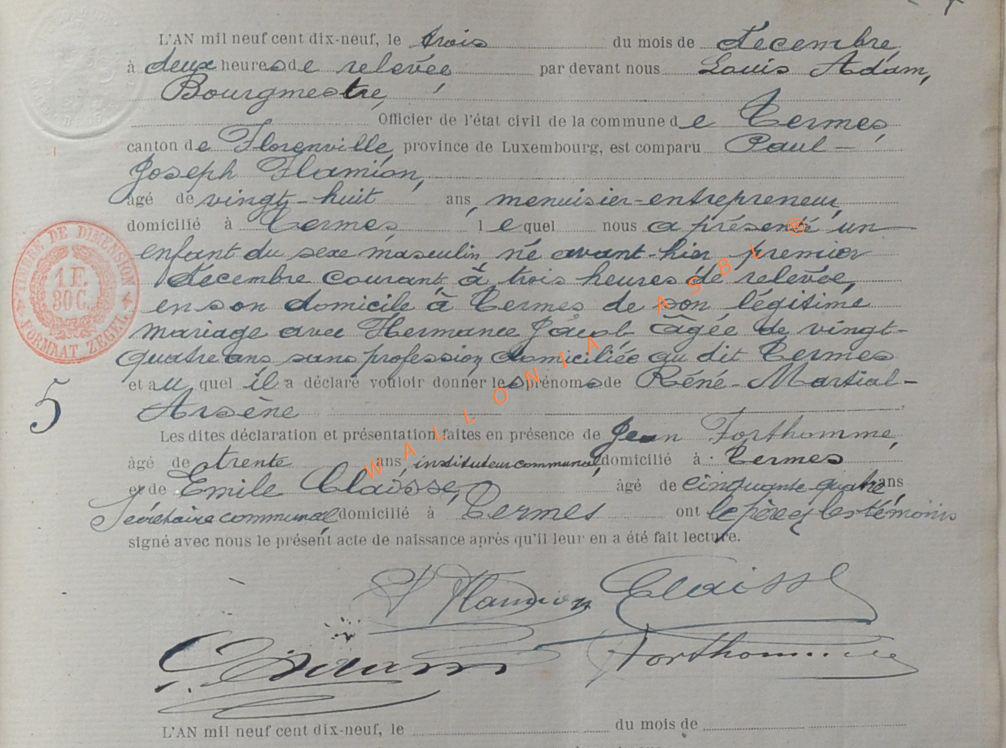 L'AN mil neuf cent dix-neuf, le trois du mois de décembre,
à deux heures de relevée par devant nous Louis Adam,
Bourgmestre,
Officier de l'état civil de la commune de Termes,
canton de Florenville, province de Luxembourg, est comparu Paul-
Joseph Flamion,
âgé de vingt-huit ans, menuisier-entrepreneur
domicilié à Termes lequel nous a présenté un
enfant du sexe masculin né avant-hier premier
décembre courant à trois heures de relevée,
en son domicile à Termes de son légitime
mariage avec Hermance Jacob âgée de vingt-
quatre ans sans profession domiciliée au dit Termes
et auquel il a déclaré vouloir donner les prénoms de Réné-Martial-
Arsène
Les dites déclaration et présentation faites en présence de Jean Forthomme,
âgé de trente ans instituteur communal, domicilié à Termes
et de Emile Claisse, âgé de cinquante quatre ans
Secrétaire communal domicilié à Termes ont le père et les témoins
signé avec nous le présent acte de naissance après qu'il leur en a été fait lecture.
P Flamion Claisse
L. Adam Forthomme
L'AN mil neuf cent dix-neuf, le du mois de
TIMBRE DE DIMENSION
1 F.
80 C.
FORMAAT ZEGEL
5
WALLONIA ASBL ©